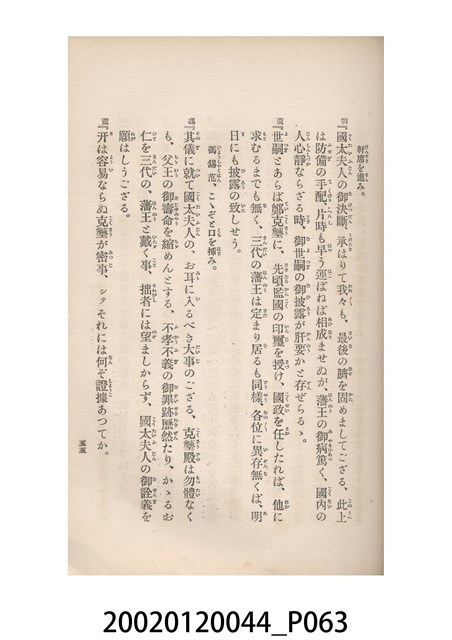 軒廊を進み。
劉『國太夫人の御決斷、承はりて我々も、最後の臍を固めましてござる、此上
は防備の手配、片時も早う運ばねば相成ませぬが、藩王の御病篤く、國內の
人心靜ならざる時、御世嗣の御披露が肝要かと存ぜらるゝ。
董『世嗣とあらば鄭克𡒉に、先頃監國の印璽を授け、國政を任したれば、他に
求むるまでも無く、三代の藩王は定まり居るも同樣、各位に異存無くば、明
日にも披露の致しせう。
馮錫范、こゝぞと口を挿み。
馮『其儀に就て國太夫人の、お耳に入るべき大事のござる、克𡒉殿は勿體なく
も、父王の御壽命を縮めんとする、不孝不義の御罪跡歷然たり、かゝるお
仁を三代の、藩王と戴く事、拙者には望ましからず、國太夫人の御詮義を
願はしうござる。
董『开は容易ならぬ克𡒉が密事、シテそれには何ぞ證據あつてか。
五五
20020120044_P063